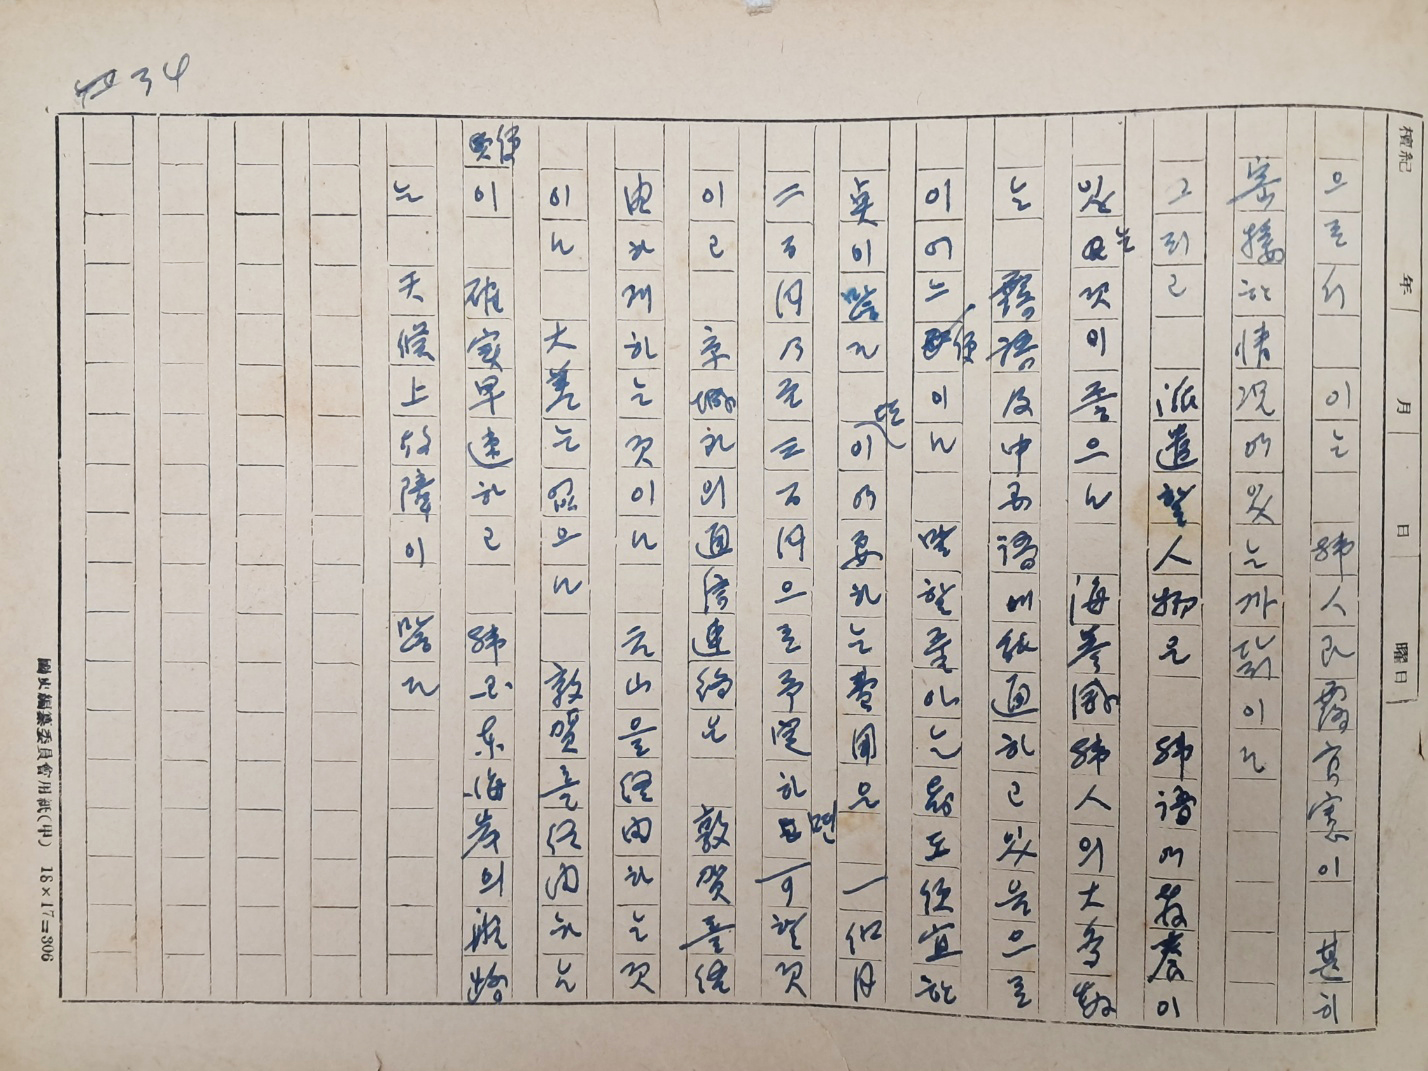 34
檀紀 年 月 日 曜日
으로서 이는 韓人民露官憲이 甚히
密接한 情況에 있는 까닭이라
그리고 派遣할 人物은 韓語에 教養이
있는 것이 좋으나 海蔘威 韓人의 大多數
는 露語及中国語에 能通하고 있음으로
이어느 便이나 말할 줄 아는 것도 便宜한
点이 많다 또 이에 要하는 費用은 一個月
二百円乃至三百円으로 予定하면 可할 것
이고 京城과의 通信連絡은 敦賀를 経
由하게 하는 것이나 元山을 経由하는 것
이나 大差는 없으나 敦賀를 経由하는
便이 確実早速하고 韓国東海岸의 航路
는 天候上 故障이 많다
國史編纂委員會用紙(甲) 18×17=306